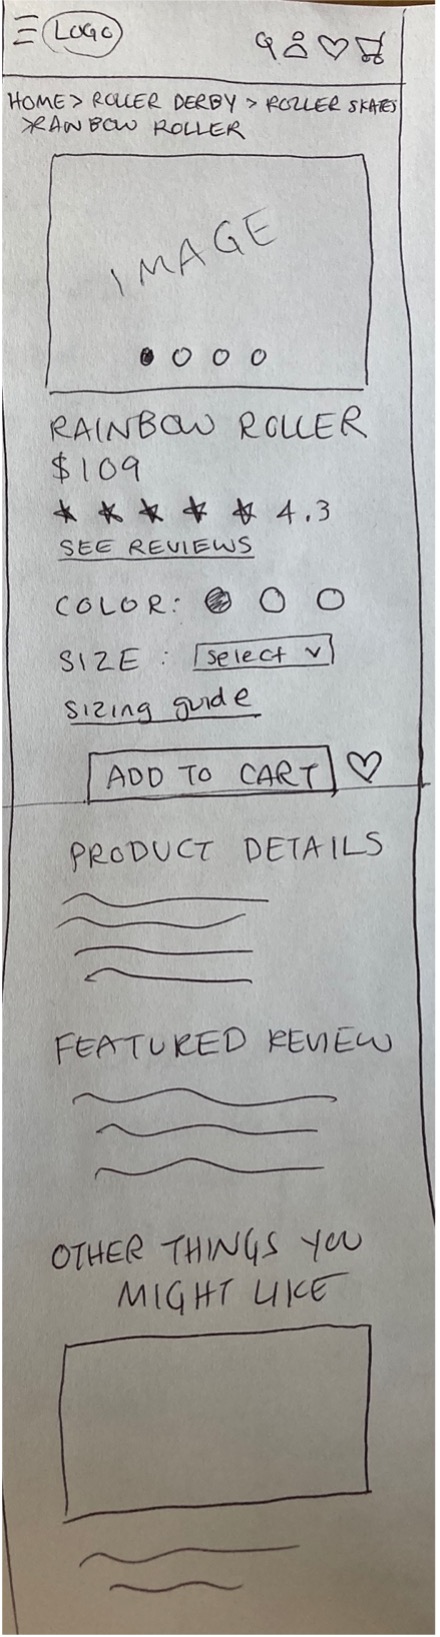 LOGO
HOME > ROLLER DERBY > ROLLER SKATES
> RAINBOW ROLLER
IMAGE
RAINBOW ROLLER
$109
4.3
SEE REVIEWS
COLOR:
SIZE : Select
Sizing guide
ADD TO CART
PRODUCT DETAILS
FEATURED REVIEW
OTHER THINGS YOU
MIGHT LIKE